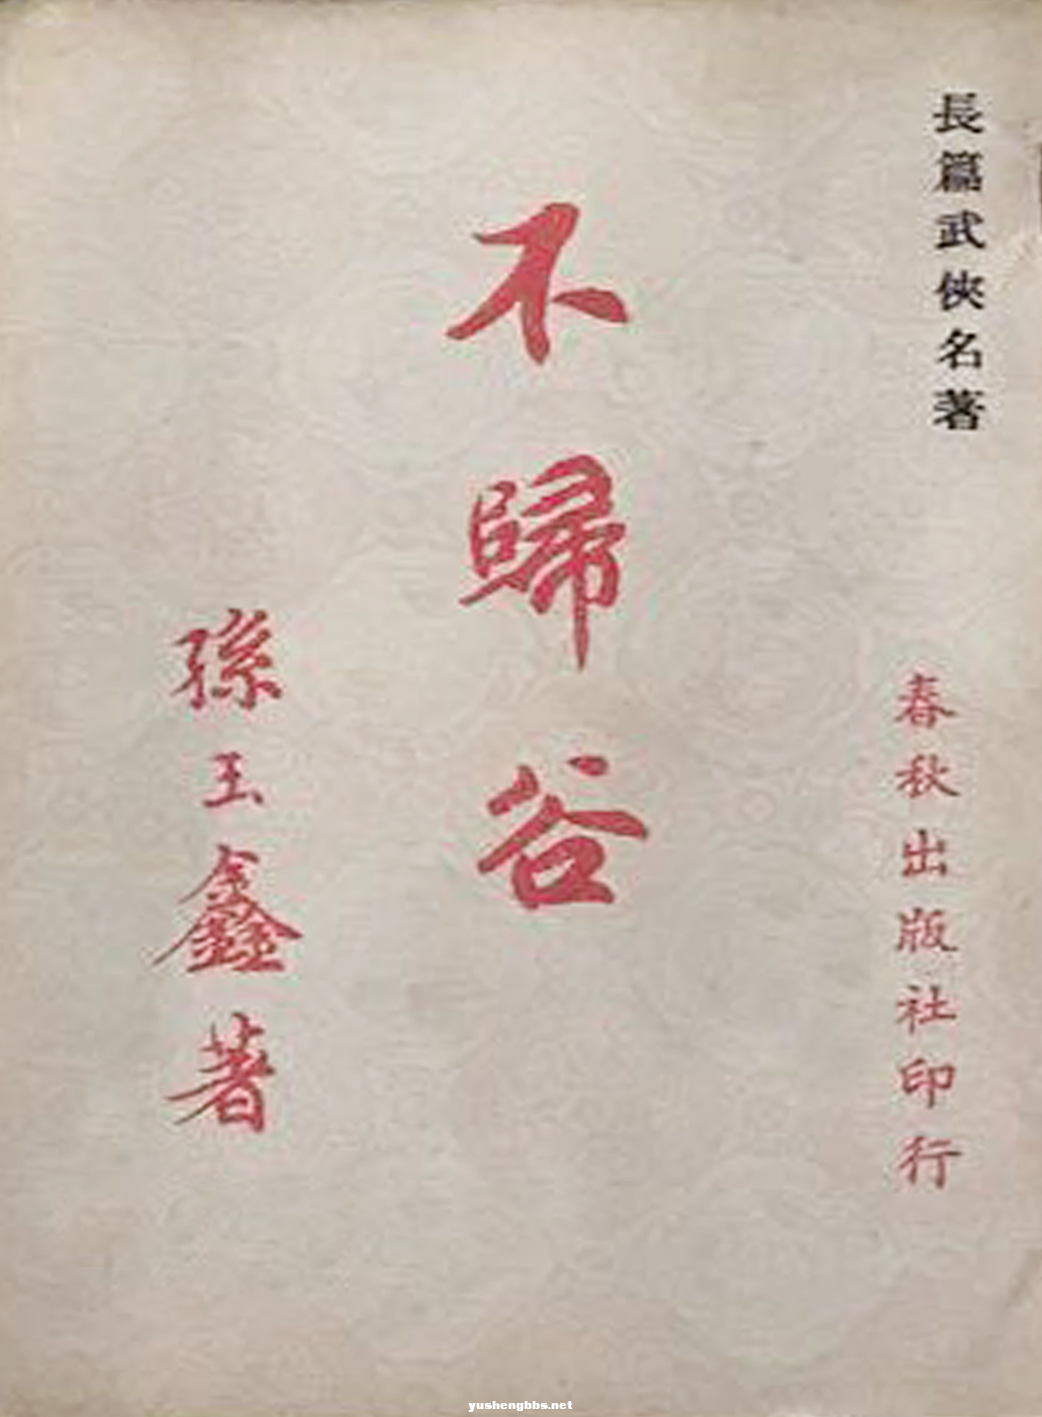 長篇武俠名著
春秋出版社印行
不歸谷
孫玉鑫著
yushengbbs.net